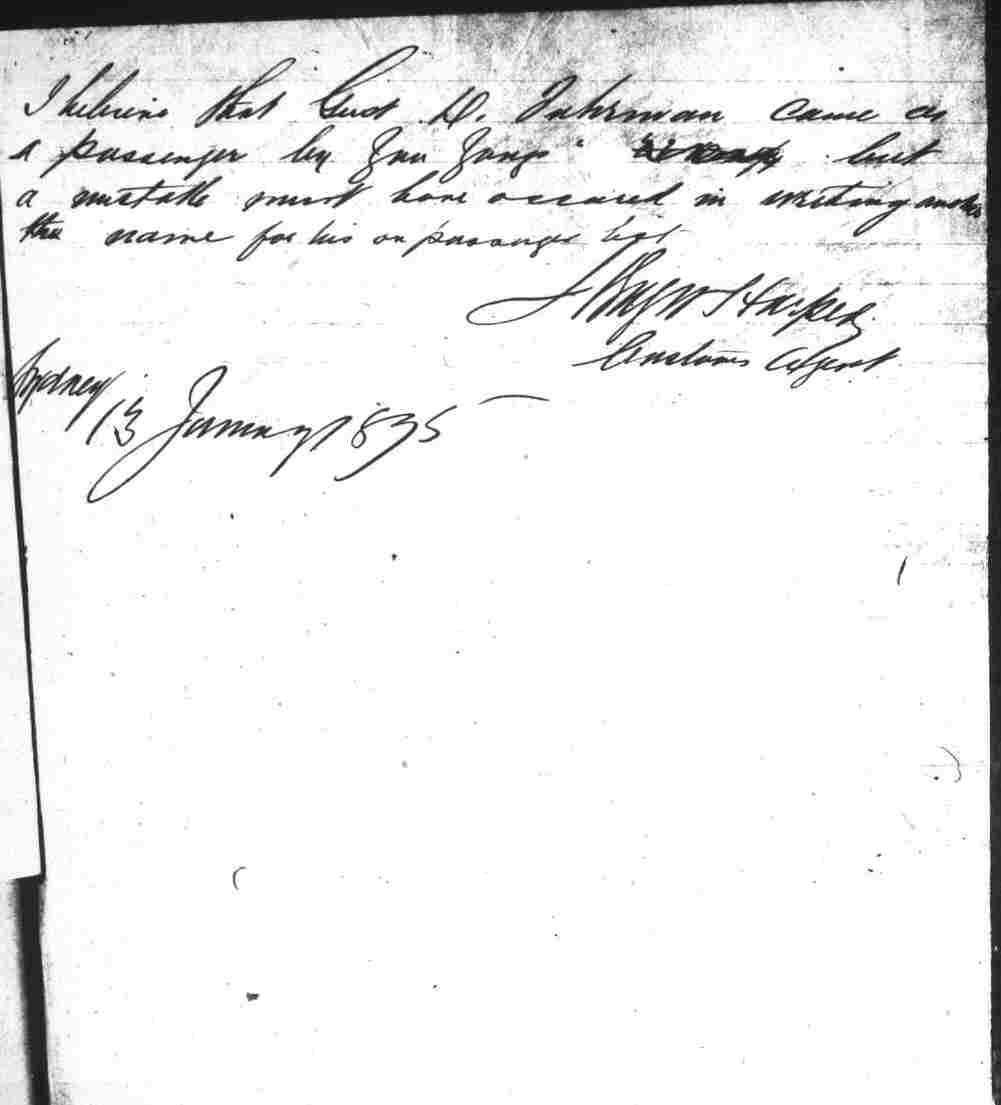 I believe that Gust D. Fuhrman came as
a passenger by but
a mistake must have occured in writing another
name for his on passenger list
Customs Agent
Sydney
13 January 1875